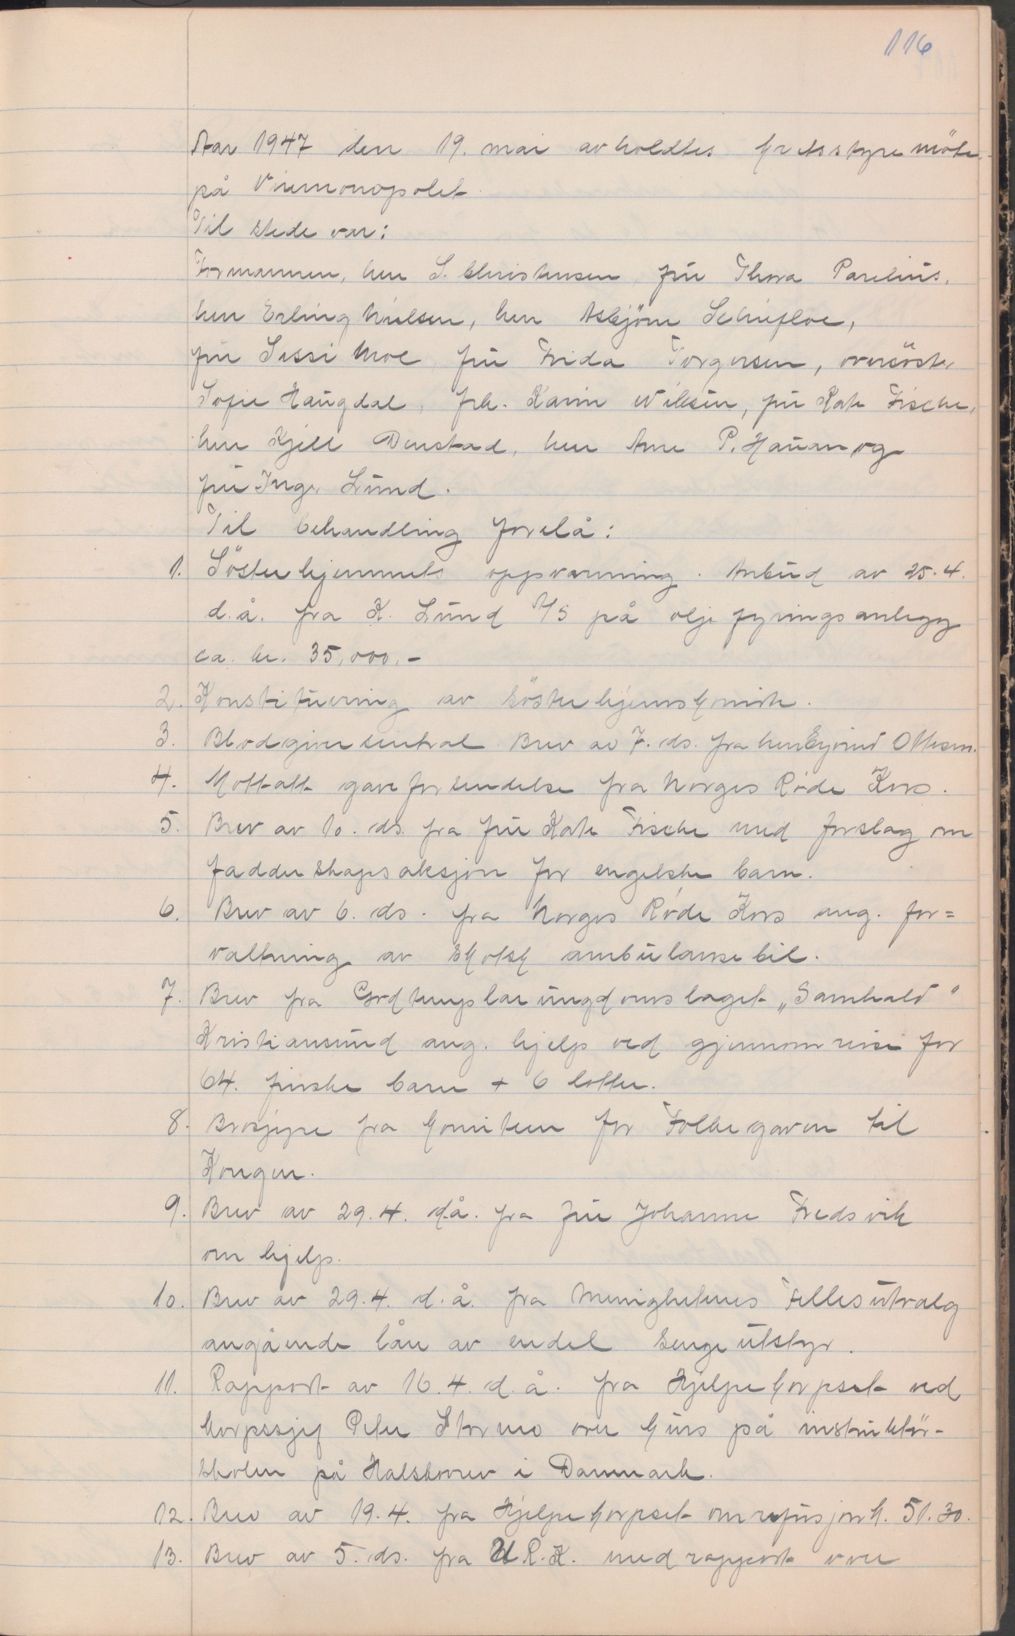 116
Aar 1947 den 19. mai avholdtes kretsstyremöte
på Vinmonopolet.
Til stede var:
Formannen, herr S. Christensen, frü Thora Parelius,
herr Erling Nielsen, herr Asbjörn Schiefloe,
frü Sissi Moe, frü Frida Torgersen, oversöster
Sofie Haugdal, frk. Karin Nilsen, frü Kate Fische,
herr Kjell Denstad, herr Arne P. Hauan og
frü Inger Lund.
Til behandling forelå:
1. Söster hjemmets oppvarming. Anbud av 25.4.
d.å. fra K. Lund A/S på olje fyrings anlegg
ca. kr. 35,000,-
2. Konstituering av Söster hjemskomite.
3. Blodgiver sentral. Brev av 7. ds. fra herr Eyvind Ottesen.
4. Mottatt gave forsendelse fra Norges Røde Kors.
5. Brev av 10. ds. fra frü Kate Fische med forslag om
fadder skaps aksjon for engelske barn.
6. Brev av 6. ds. fra Norges Røde Kors ang. for=
valtning av Skotsk ambulanse bil.
7. Brev fra Godtemplar ungdomslaget „Samhald"
Kristiansund ang. hjelp ved gjennomreise for
64. finske barn + 6 lotter.
8. Brosjyre fra komiteen for Folkegaven til
Kongen.
9. Brev av 29.4. d.å. fra frü Johanne Fredsvik
om hjelp.
10. Brev av 29.4. d.å. fra Menighetenes Fellesutvalg
angående lån av endel senge utstyr.
11. Rapport av 16.4. d.å. fra Hjelpekorpset ved
korpssjef Peter Stormo over kurs på instruktör-
skolen på Halskovrev i Danmark.
12. Brev av 19.4. fra Hjelpekorpset om refusjon k. 51.30.
13. Brev av 5. ds. fra U.R.K. med rapport over